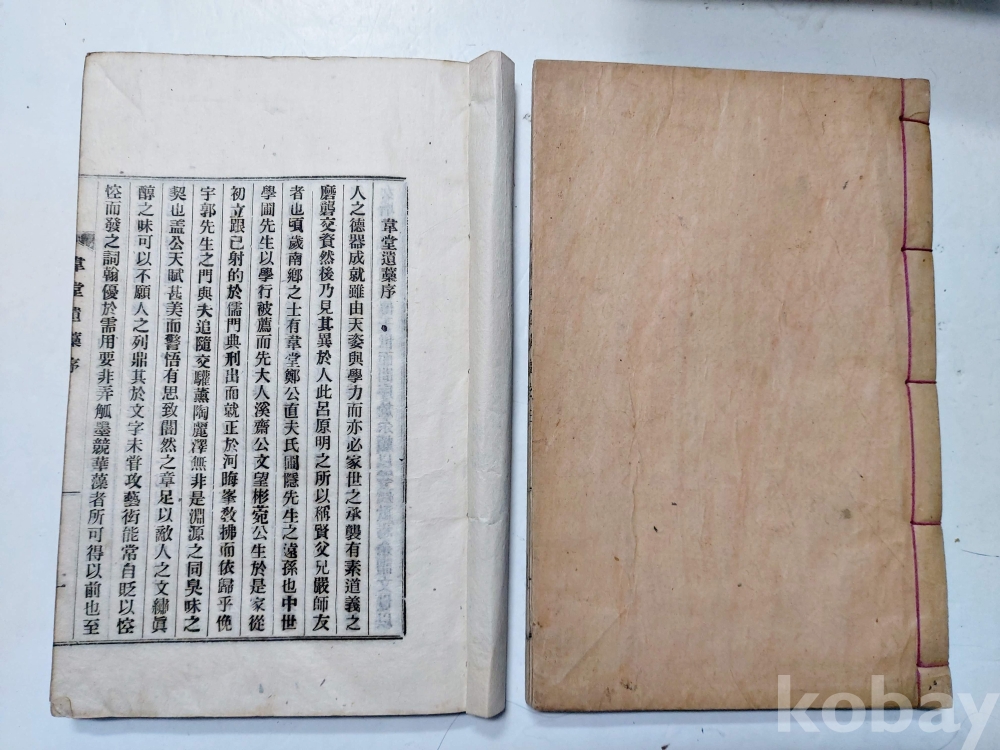 韋堂遺藁序
人之德器成就雖由天姿與學力而亦必家世之承襲有素道義之
磨礱交資然後乃見其異於人此呂原明之所以稱賢父兄嚴師友
者也頃歲南鄉之士有韋堂鄭公直夫氏圃隱先生之遠孫也中世
學圃先生以學行被薦而先大人溪齋公文望彬菀公生於是家從
初立跟已射的於儒門典刑出而就正於河晦峯敎拂而依歸乎俛
宇郭先生之門與夫追隨交驩薰陶麗澤無非是淵源之同臭味之
契也盖公天賦甚美而警悟有思致闇然之章足以敵人之文繡眞
醇之味可以不願人之列鼎其於文字未甞攻藝術能常自貶以悾
悾而發之詞翰優於需用要非弄觚墨競華藻者所可得以前也至
韋堂遺藁序
一
kobay